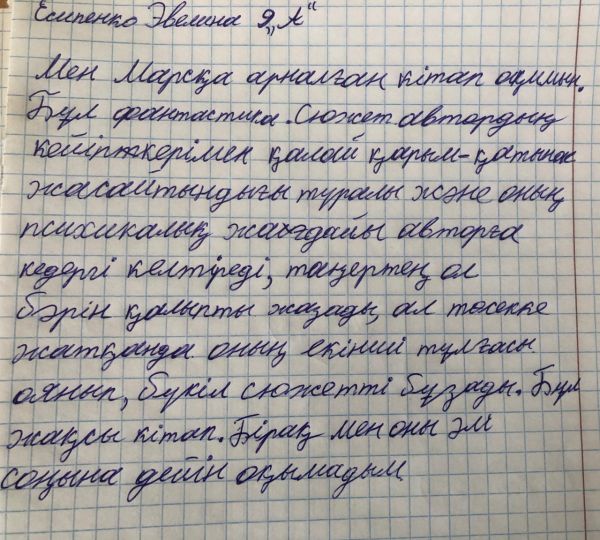 Есипенко Эвелина 9 „А“
Мен Марсқа арналған кітап оқимын.
Бұл фантастика. Сюжет автордың
кейіпткерімен қалай қарым-қатынас
жасайтындығы туралы және оның
психикалық жағдайы авторға
кедергі келтіреді, таңертең ол
бәрін қалыпты жазады, ал төсекке
жатқанда оның екінші тұлғасы
оянып, бүкіл сюжетті бұзады. Бұл
жақсы кітап. Бірақ мен оны әлі
соңына дейін оқымадым